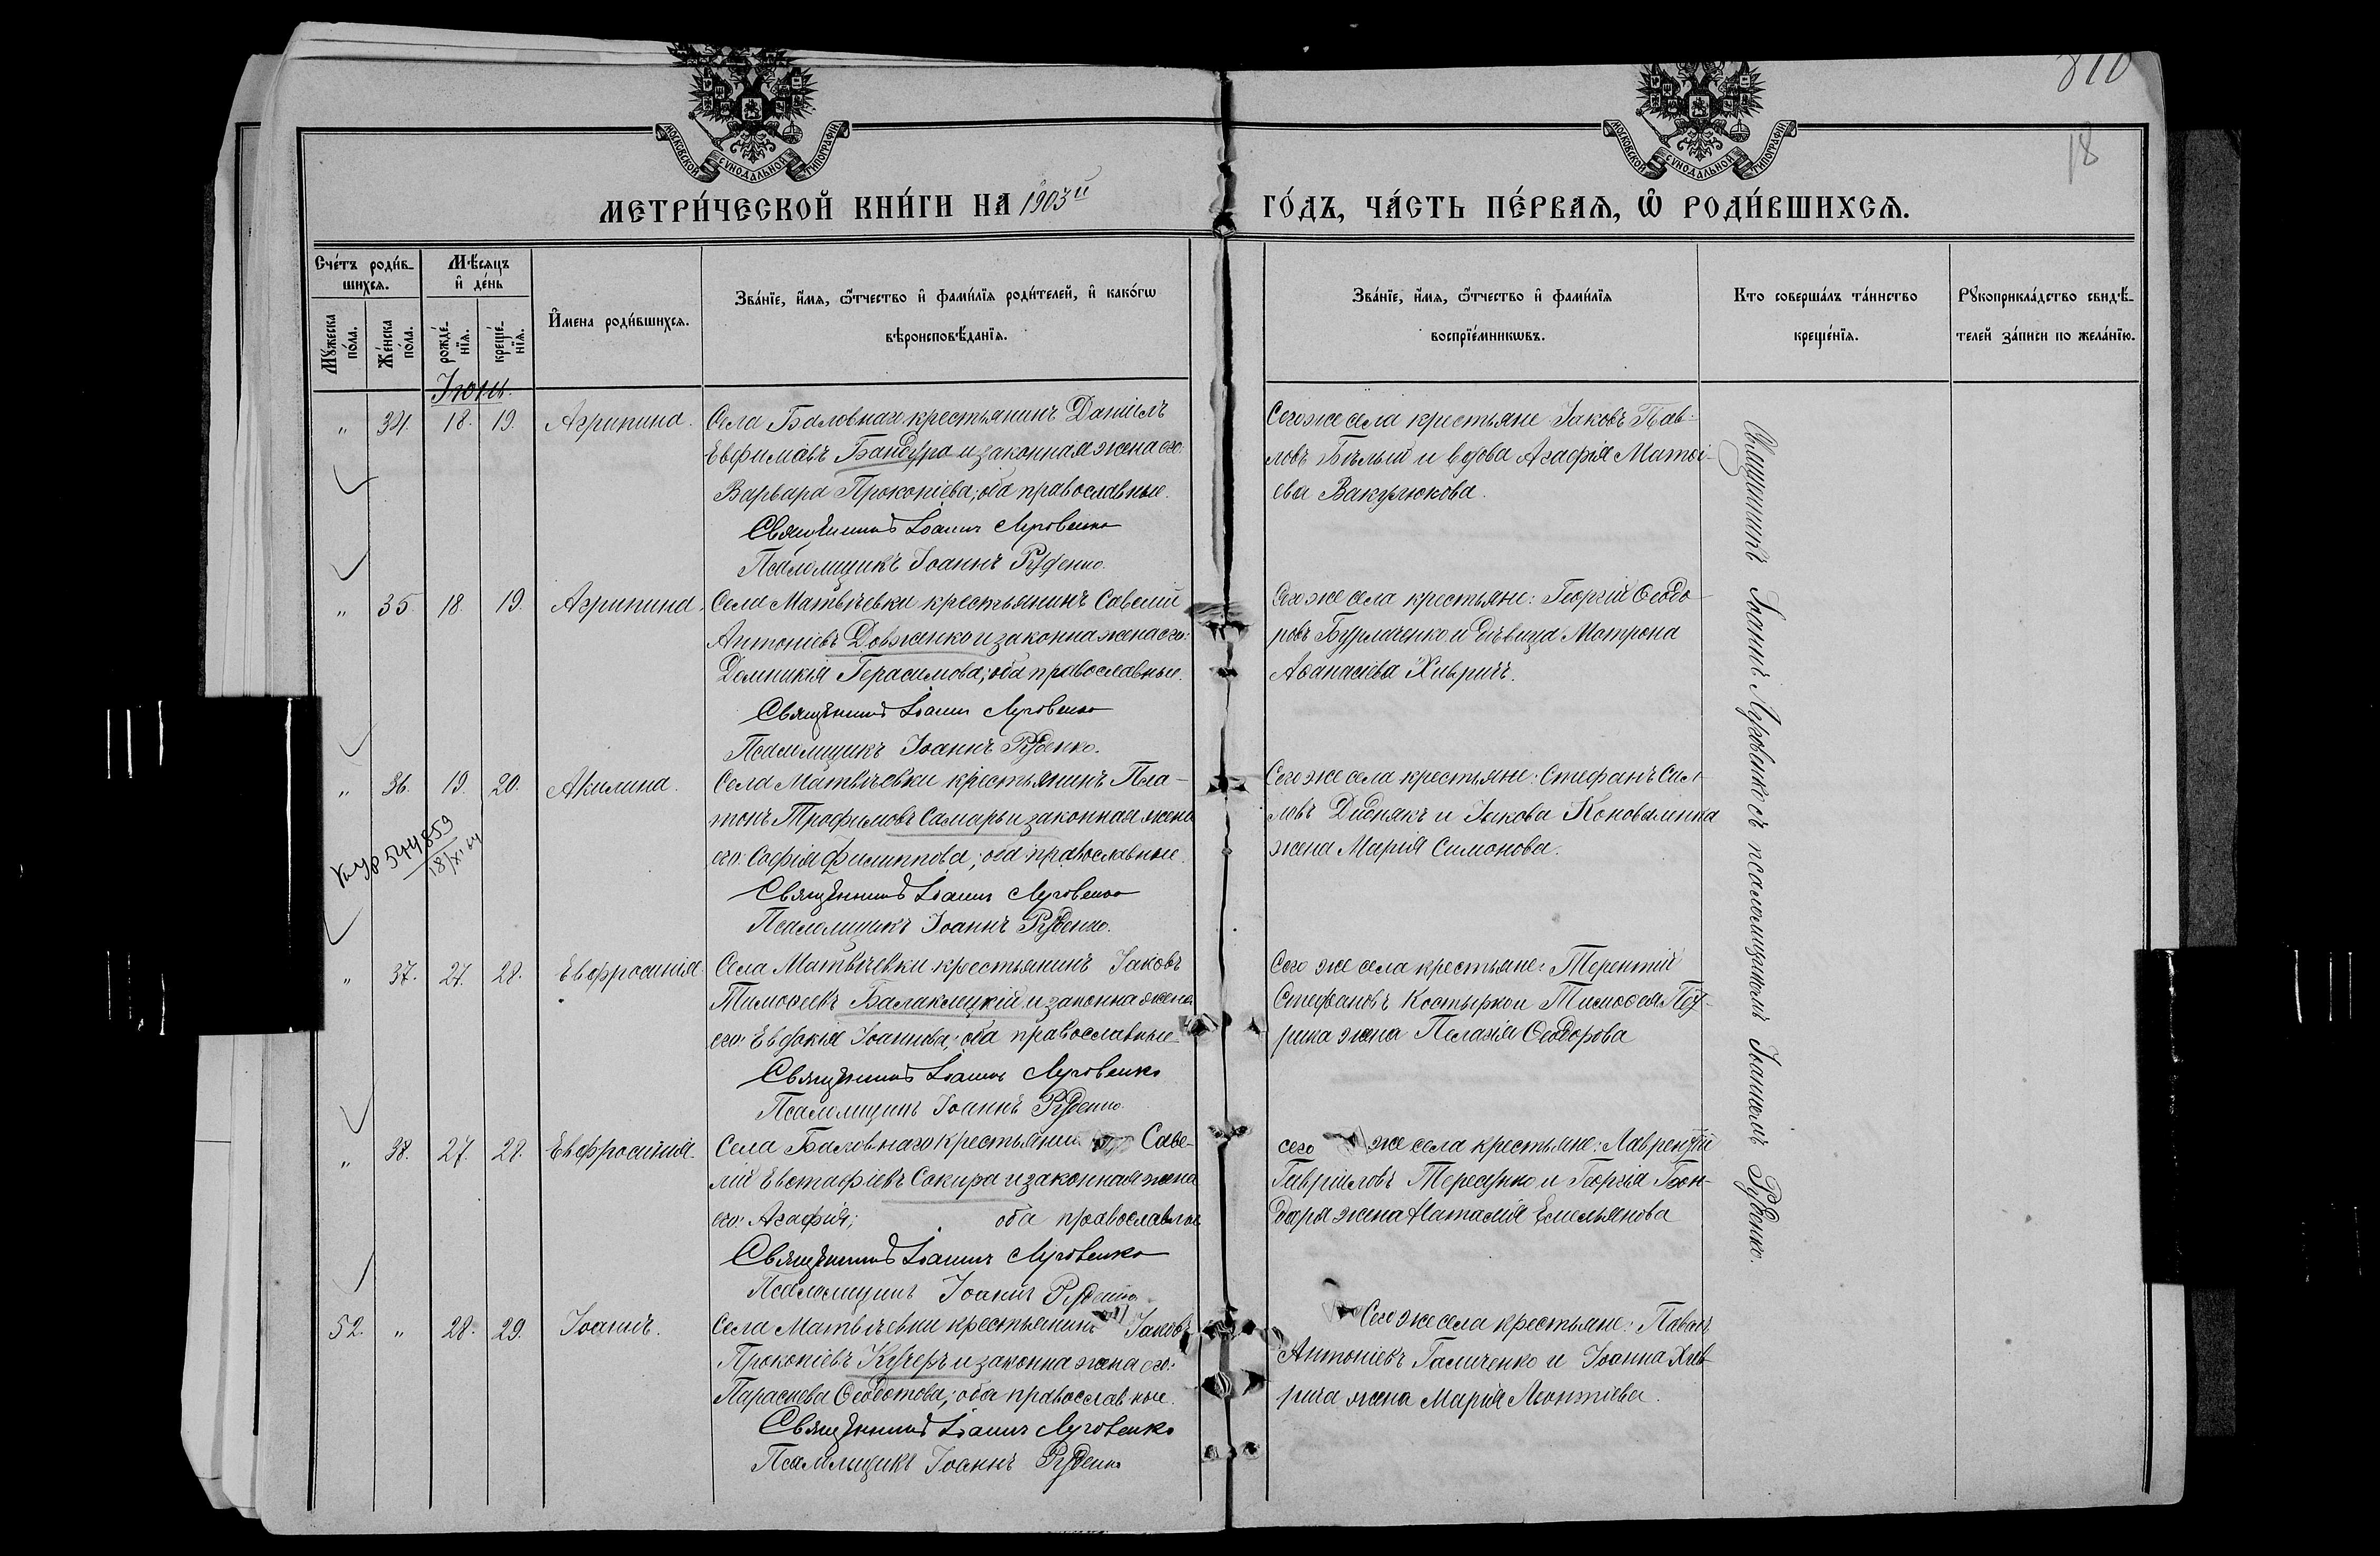 810
18
МОСКОВСКОЙ СУНОДАЛЬНОЙ ТИПОГРАФІИ
МОСКОВСКОЙ СУНОДАЛЬНОЙ ТИПОГРАФІИ
МЕТРИ́ЧЕСКОЙ КНИ́ГИ НА 1903й ГО́ДЪ, ЧА́СТЬ ПЕ́РВАЯ, Ѡ РОДИ́ВШИХСЯ.
Сче́тъ роди́в-
шихся.
Мѣсяцъ
и де́нь
Му́жеска
по́ла.
Же́нска
по́ла.
рожде́-
нія.
креще́-
нія.
И́мена роди́вшихся.
Зва́ніе, и́мя, ѻ҆́тчество и фами́лія роди́телей, и како́гѡ
вѣроисповѣ́данія.
Зва́ніе, и́мя, ѻ҆́тчество и фами́лія
воспріе́мникѡвъ.
Кто соверша́лъ та́инство
креще́нія.
Рꙋкоприкла́дство свидѣ́-
телей за́писи по жела́нію.
Іюнь.
" 34. 18. 19. Агрипина. Села Баловнаго крестьянинъ Даніилъ
Евфимовъ Бандура и законная жена его:
Варвара Прокопіева; оба православные.
Священникъ Іоаннъ Луговенко
Псаломщикъ Іоаннъ Руденко.
Сего же села крестьяне Іаковъ Пав-
ловъ Бѣлый и вдова Агафія Матѳі-
ева Вакулюкова.
" 35 18. 19. Агрипина. Села Матвѣевки крестьянинъ Савелий
Антоніевъ Довженко и законна жена его:
Домникія Герасимова; оба православные.
Священникъ Іоаннъ Луговенко
Псаломщикъ Іоаннъ Руденко.
Сего же села крестьяне: Георгій Ѳеодо-
ровъ Бурлаченко и дѣвица Мотрона
Аѳанасіева Хивричъ.
" 36. 19. 20. Акилина. Села Матвѣевки крестьянинъ Пла-
тонъ Трофимовъ Самарь и законная жена
его: Софія Филиппова; оба православные.
Священникъ Іоаннъ Луговенко
Псаломщикъ Іоаннъ Руденко.
Сего же села крестьяне: Стефанъ
Дидиякъ и Іакова Коновалика
жена Марія Симонова.
544859
18/XI 64
" 37. 27. 28. Евфросинія. Села Матвѣевки крестьянинъ Іаковъ
Тимоѳеевъ Балаклецкій и законна жена
его: Евдокія Іоаннова; оба православные
Священникъ Іоаннъ Луговенко
Псаломщикъ Іоаннъ Руденко.
Сего же села крестьяне: Терентій
Стефановъ Костырко и Тимоѳея
жена Пелагія Ѳеодорова
" 38. 27. 28. Евфросинія. Села Баловнаго крестьянинъ Саве-
лій Евстафіевъ Сокира и законная жена
его: Агафія; оба православные
Священникъ Іоаннъ Луговенко
Псаломщикъ Іоаннъ Руденко
сего же села крестьяне: Лаврентій
Гавріиловъ Тересунко и Георгія Бон-
даря жена Наталія Емельянова
52. " 28. 29. Іоаннъ. Села Матвѣевки крестьянинъ Іаковъ
Прокопіевъ Кучеръ и законна жена его:
Параскева Ѳеодотова; оба православные.
Священникъ Іоаннъ Луговенко
Псаломщикъ Іоаннъ Руденко
Сего же села крестьяне: Павелъ
Антоніевъ Галиченко и Іоанна Хив-
рича жена Марія Леонтіева.
Священникъ Іоаннъ Луговенко съ псаломщикомъ Іоанномъ Руденко.